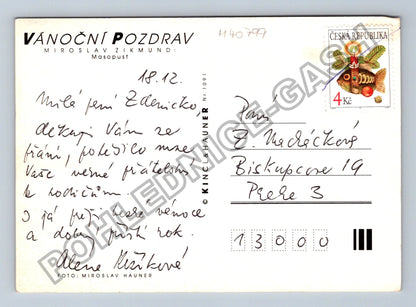 VÁNOČNÍ POZDRAV
MIROSLAV ZIKMUND:
Masopust
H40799
ČESKÁ REPUBLIKA
4 Kč
18.12.
Milá paní Zdeničko,
děkuji Vám za
přání, potěšilo mne
Vaše věrné přátelství
k rodičům
I já přeji hezké vánoce
a dobrý příští rok.
Alena
FOTO: MIROSLAV HAUNER
© KINCL & HAUNER Nr. 1091
Paní
Z.
Biskupcova 19
Praha 3
13000
POHLEDNICE-GASH